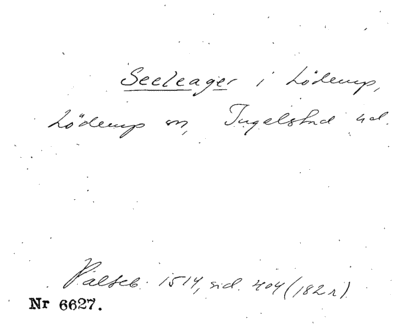 Seeleager i Löderup,
Löderup sn, Ingelstad hd.
Palteb. 1514, sid. 404 (182 r)
Nr 6627.